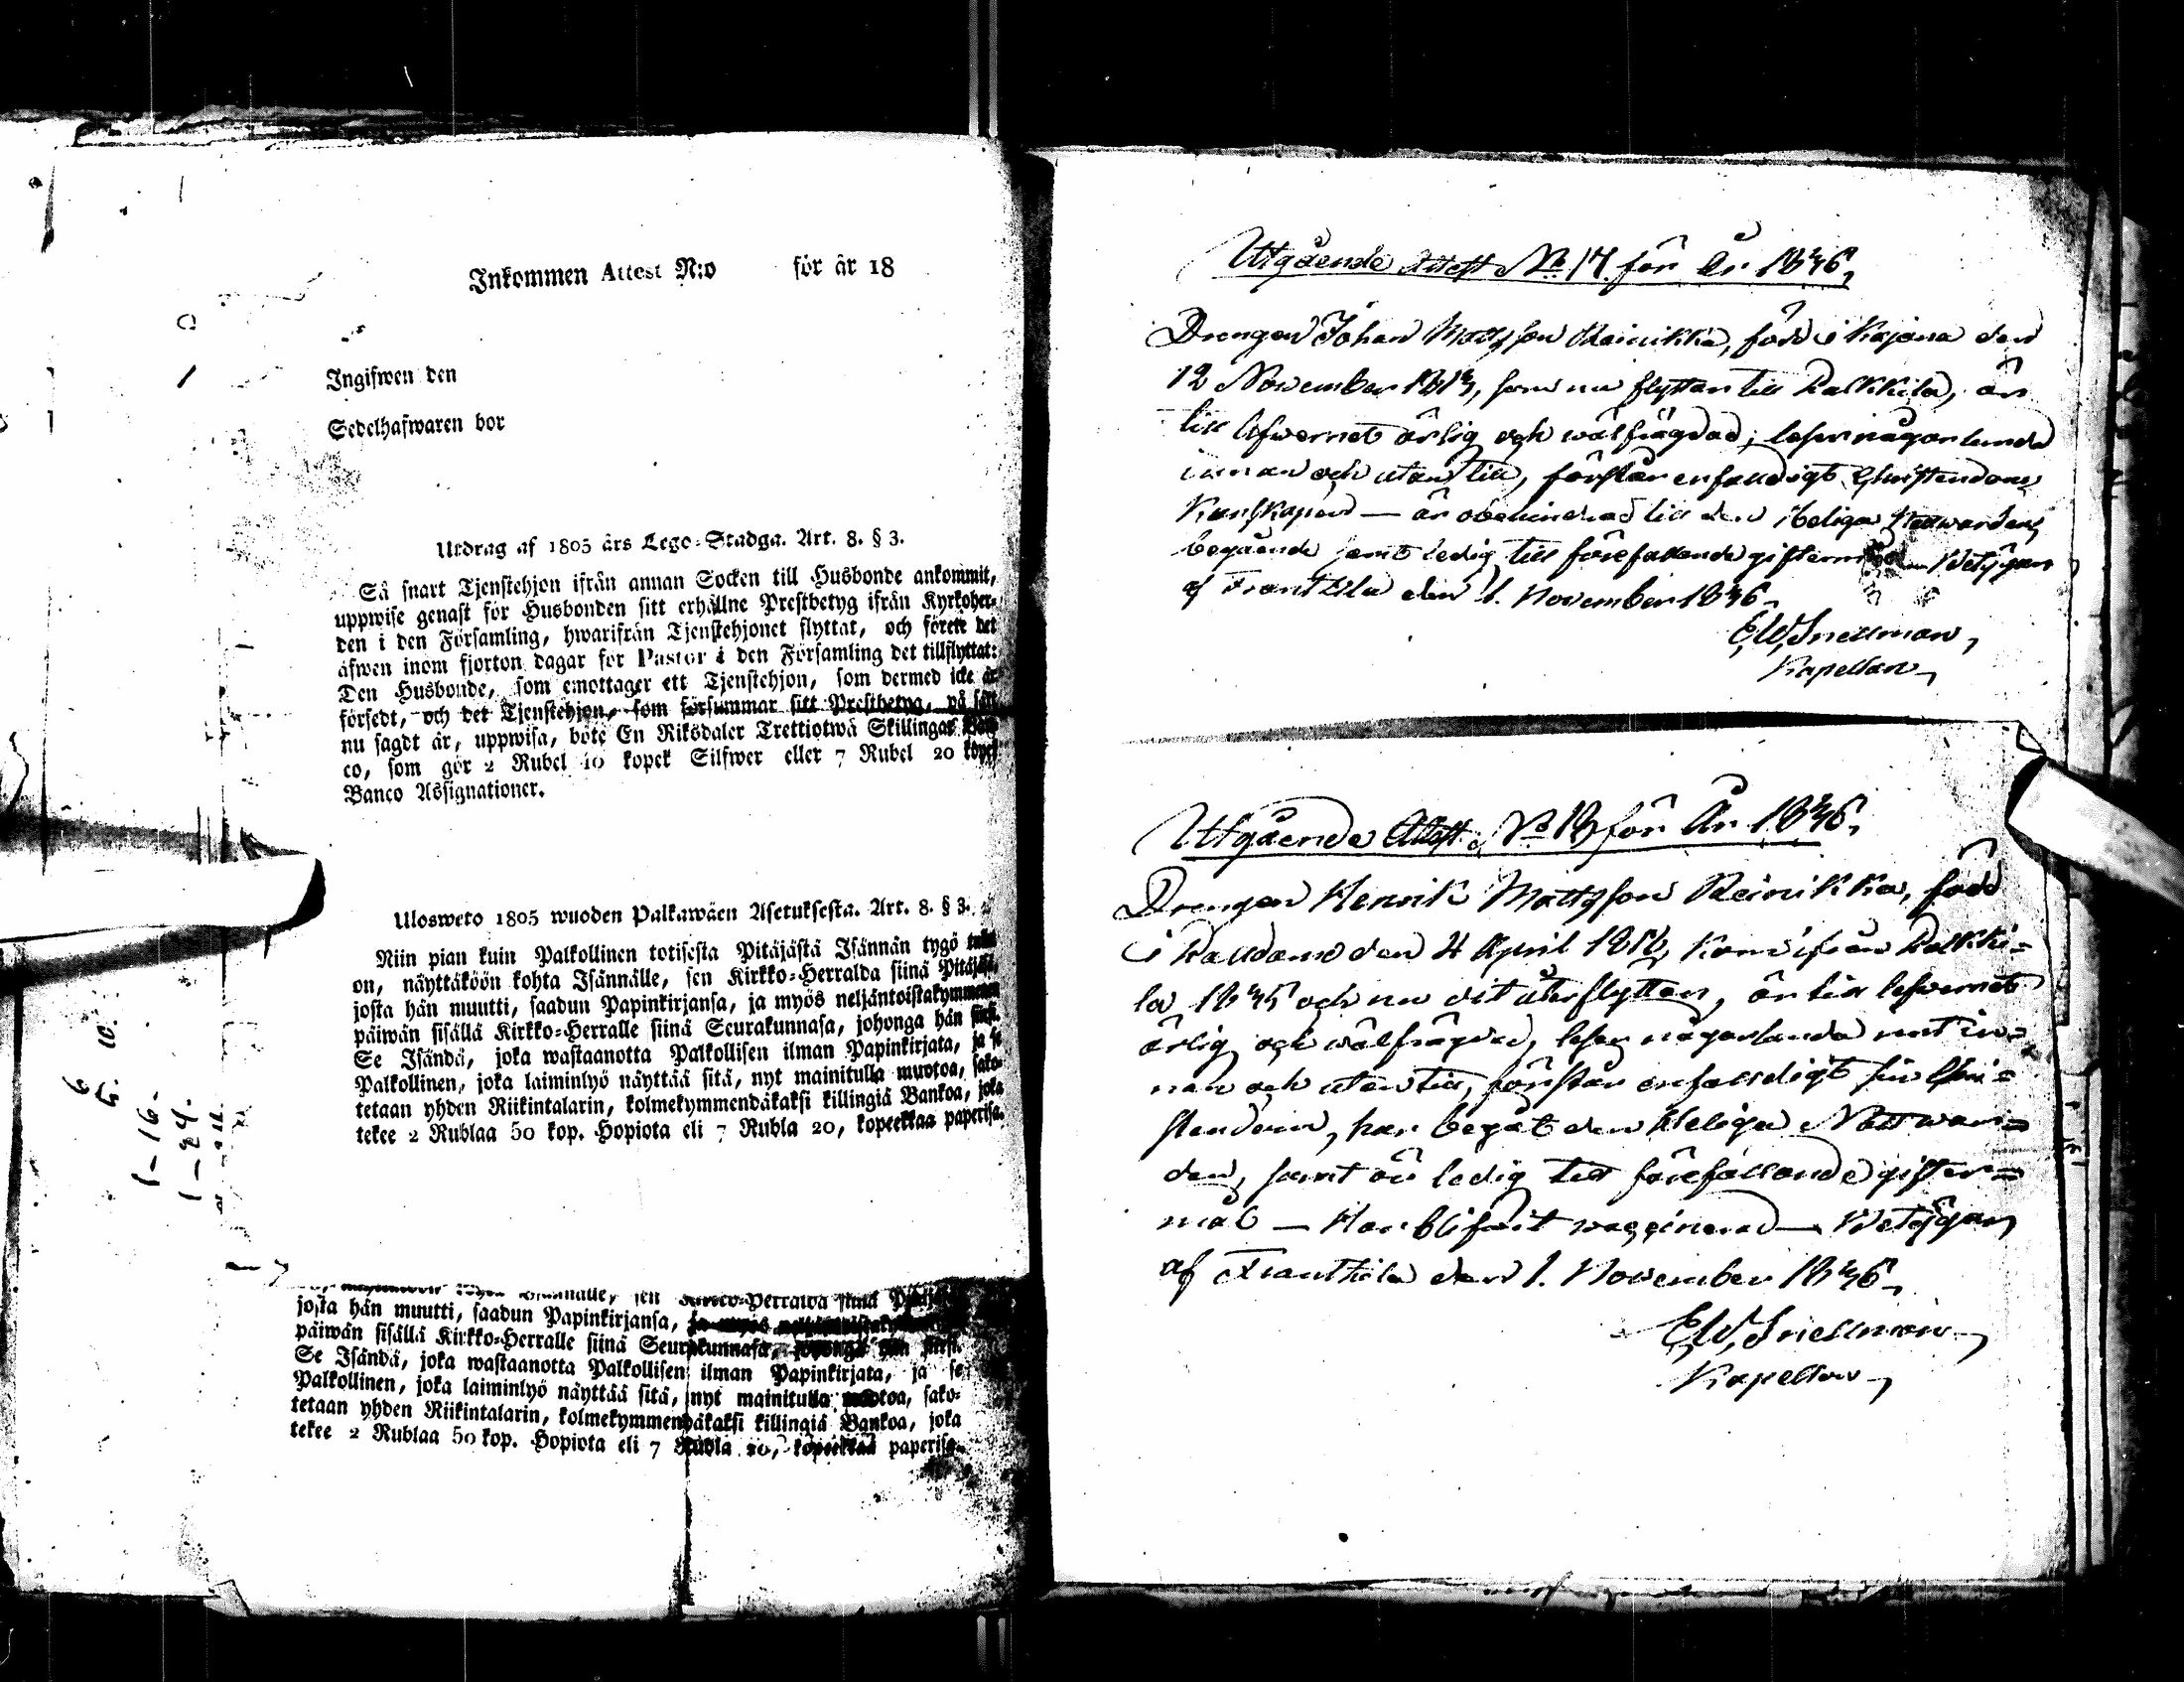 Inkommen Attest N:o för år 18
Ingifwen den
Sedelhafwaren bor
Utdrag af 1805 års Lego-Stadga. Art. 8. § 3.
Så snart Tjenstehjon ifrån annan Socken till Husbonde ankommit,
uppwise genast för Husbonden sitt erhållne Prestbetyg ifrån Kyrkoher-
den i den Församling, hwarifrån Tjenstehjonet flyttat, och förete det
äfwen inom fjorton dagar för Pastor i den Församling det tillflyttat:
Den Husbonde, som emottager ett Tjenstehjon, som dermed icke är
försedt, och det Tjenstehjon, som försummar sitt Prestbetyg, på sätt
nu sagdt är, uppwisa, böte En Riksdaler Trettiotwå Skillingar Ban
co, som gör 2 Rubel 10 kopek Silfwer eller 7 Rubel 20 kopek
Banco Assignationer.
Ulosweto 1805 wuoden Palkawäen Asetuksesta. Art. 8. § 3.
Niin pian kuin Palkollinen totisesta Pitäjästä Isännän tygö tullut
on, näyttäköön kohta Isännälle, sen Kirkko-Herralda siinä Pitäjäs,
josta hän muutti, saadun Papinkirjansa, ja myös neljäntoistakymmenen
päiwän sisällä Kirkko-Herralle siinä Seurakunnasa, johonga hän siirsi.
Se Isändä, joka wastaanotta Palkollisen ilman Papinkirjata, ja se
Palkollinen, joka laiminlyö näyttää sitä, nyt mainitulla muotoa, sako-
tetaan yhden Riikintalarin, kolmekymmendäkaksi killingiä Bankoa, joka
tekee 2 Rublaa 50 kop. Hopiota eli 7 Rubla 20, kopeekkaa paperisa.
josta hän muutti, saadun Papinkirjansa,
päiwän sisällä Kirkko-Herralle siinä Seurakunnasa, johonga hän siirsi.
Se Isändä, joka wastaanotta Palkollisen ilman Papinkirjata, ja se
Palkollinen, joka laiminlyö näyttää sitä, nyt mainitulla muotoa, sako-
tetaan yhden Riikintalarin, kolmekymmendäkaksi killingiä Bankoa, joka
tekee 2 Rublaa 50 kop. Hopiota eli 7 Rubla 20, kopeekkaa paperisa.
5. 10.
1-16.
1-24.
Utgående Attest No 17. för År 1846,
Drengen Johan Mattsson Reinikka, född i Kajana den
12 November 1813, som nu flyttar till Palkkila, är
till lefwernet ärlig och wälfrägdad; läser någorlunda
innan och utan till, förstår enfaldigt Christendoms
kunskapen — är obehindrad till den Heliga Nattwardens
begående samt ledig till förefallande giftermål — Betygar
af Frantzila den 1. November 1846,
E, W, Snellman,
Kapellan,
Utgående Attest No 18 för År 1846,
Drengen Henrik Mattsson Reinikka, född
i Paldamo den 4 April 1816, kom ifrån Palkki-
la 1845 och nu dit återflyttar, är till lefwernet
ärlig och wälfrägdad, läser någorlunda rent in-
nan och utan till, förstår enfaldigt sin Chri-
stendom, har begåt den Heliga Nattwar-
den, samt är ledig till förefallande gifter-
mål — Har blifwit waccinerad — Betygar,
af Frantzila den 1. November 1846,
E, W, Snellman,
Kapellan,